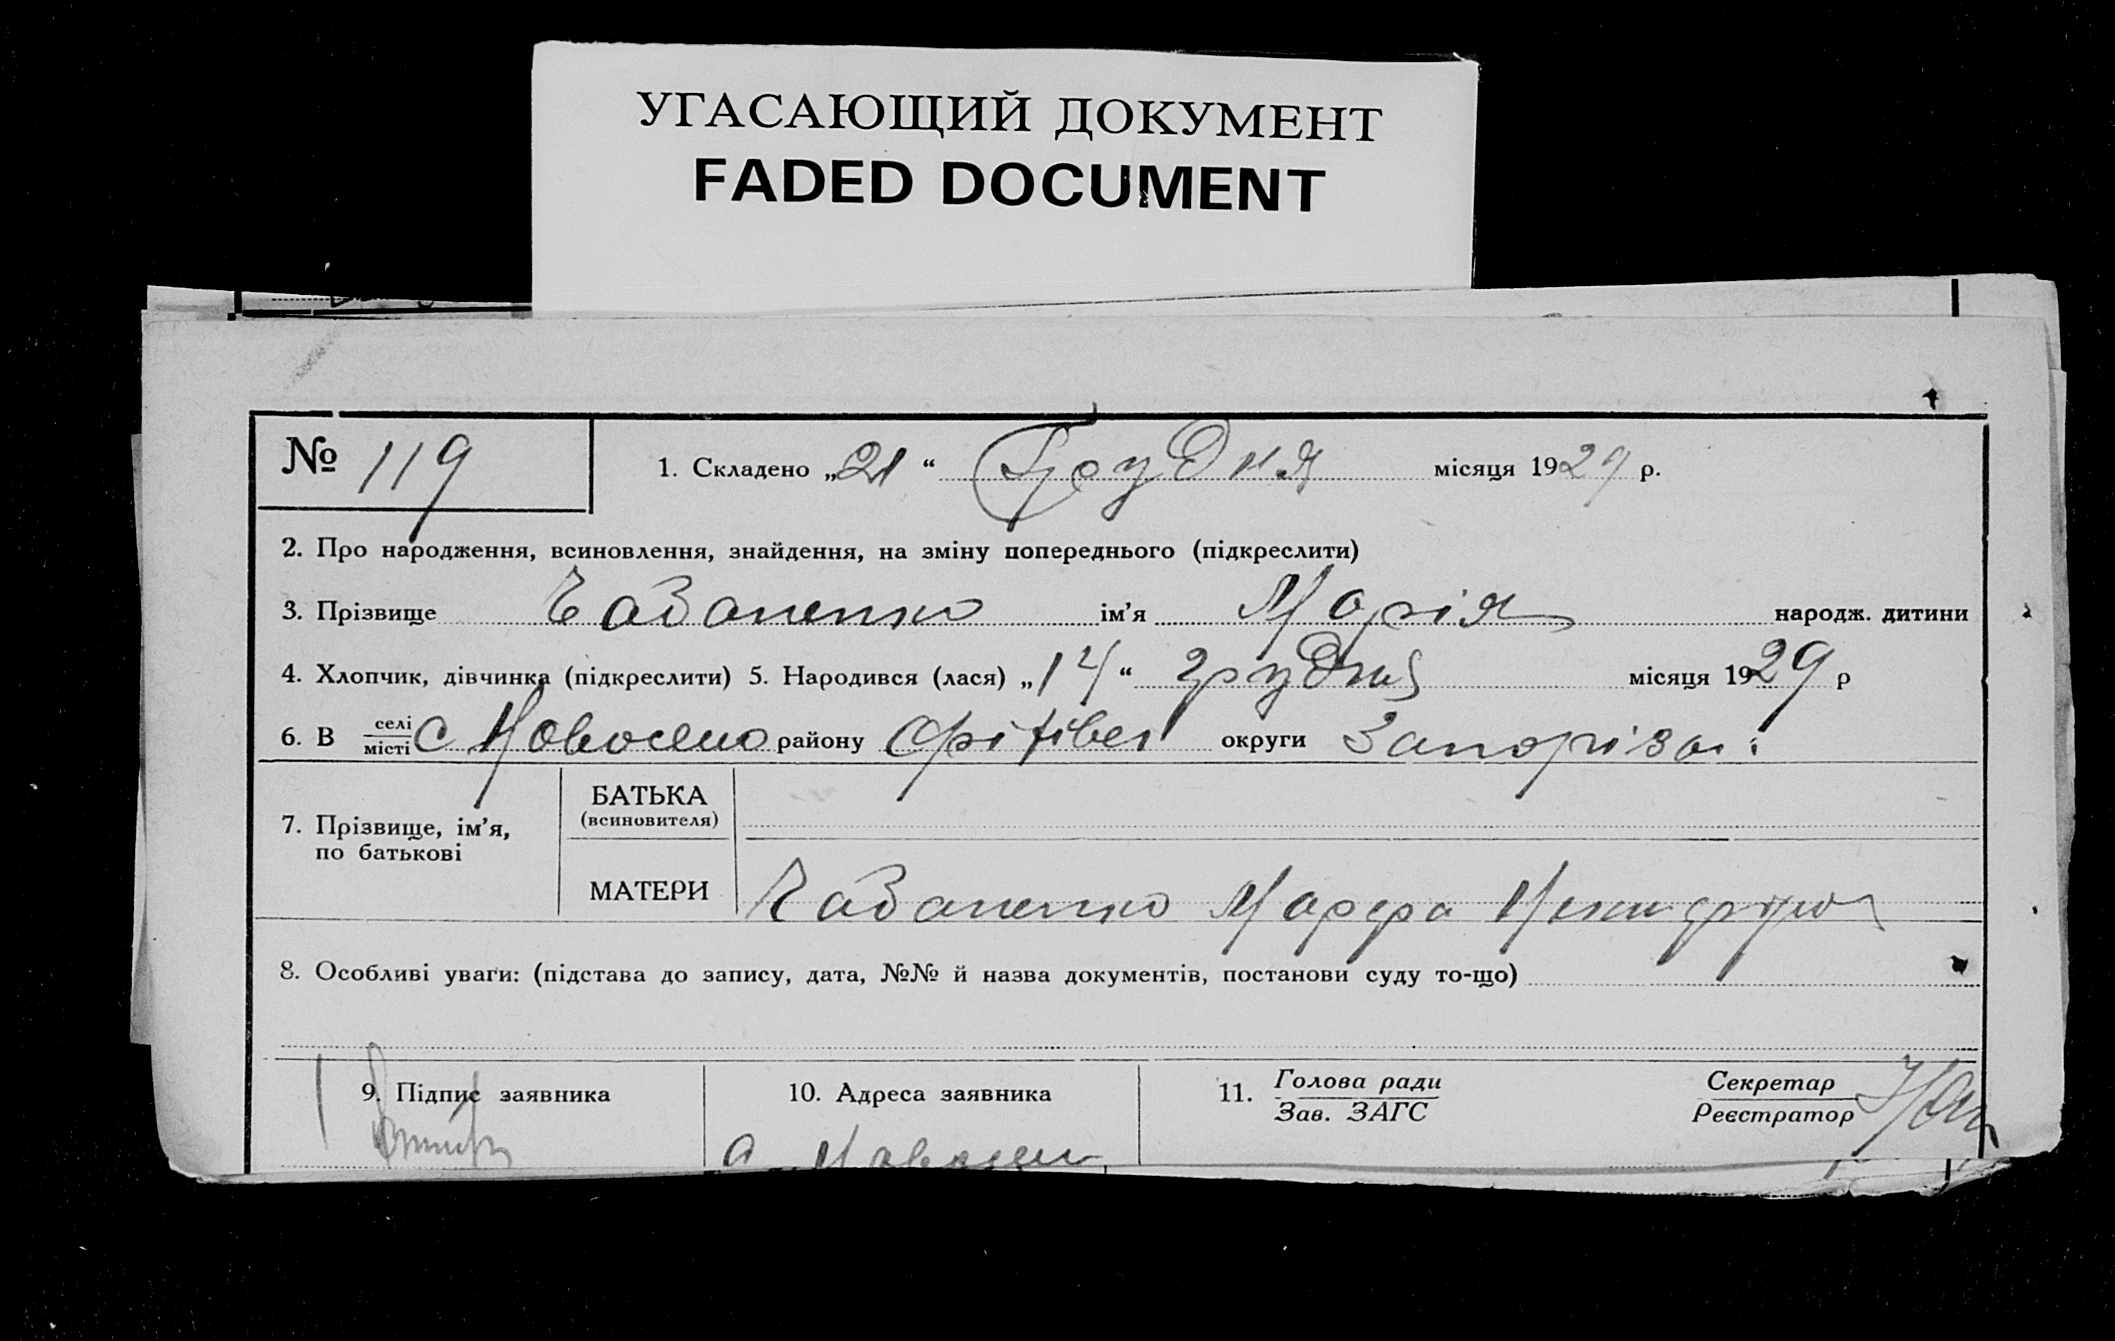 УГАСАЮЩИЙ ДОКУМЕНТ
FADED DOCUMENT
№ 119
1. Складено „21“ Грудня місяця 1929 р.
2. Про народження, всиновлення, знайдення, на зміну попереднього (підкреслити)
3. Прізвище Чабаненко ім’я Марія народж. дитини
4. Хлопчик, дівчинка (підкреслити) 5. Народився (лася) „14“ грудня місяця 1929 р
6. В селі/місті с району округи
7. Прізвище, ім’я, по батькові
БАТЬКА
(всиновителя)
МАТЕРИ Чабаненко Марфа
8. Особливі уваги: (підстава до запису, дата, №№ й назва документів, постанови суду то-що)
9. Підпис заявника
10. Адреса заявника
11. Голова ради Секретар
Зав. ЗАГС Реєстратор